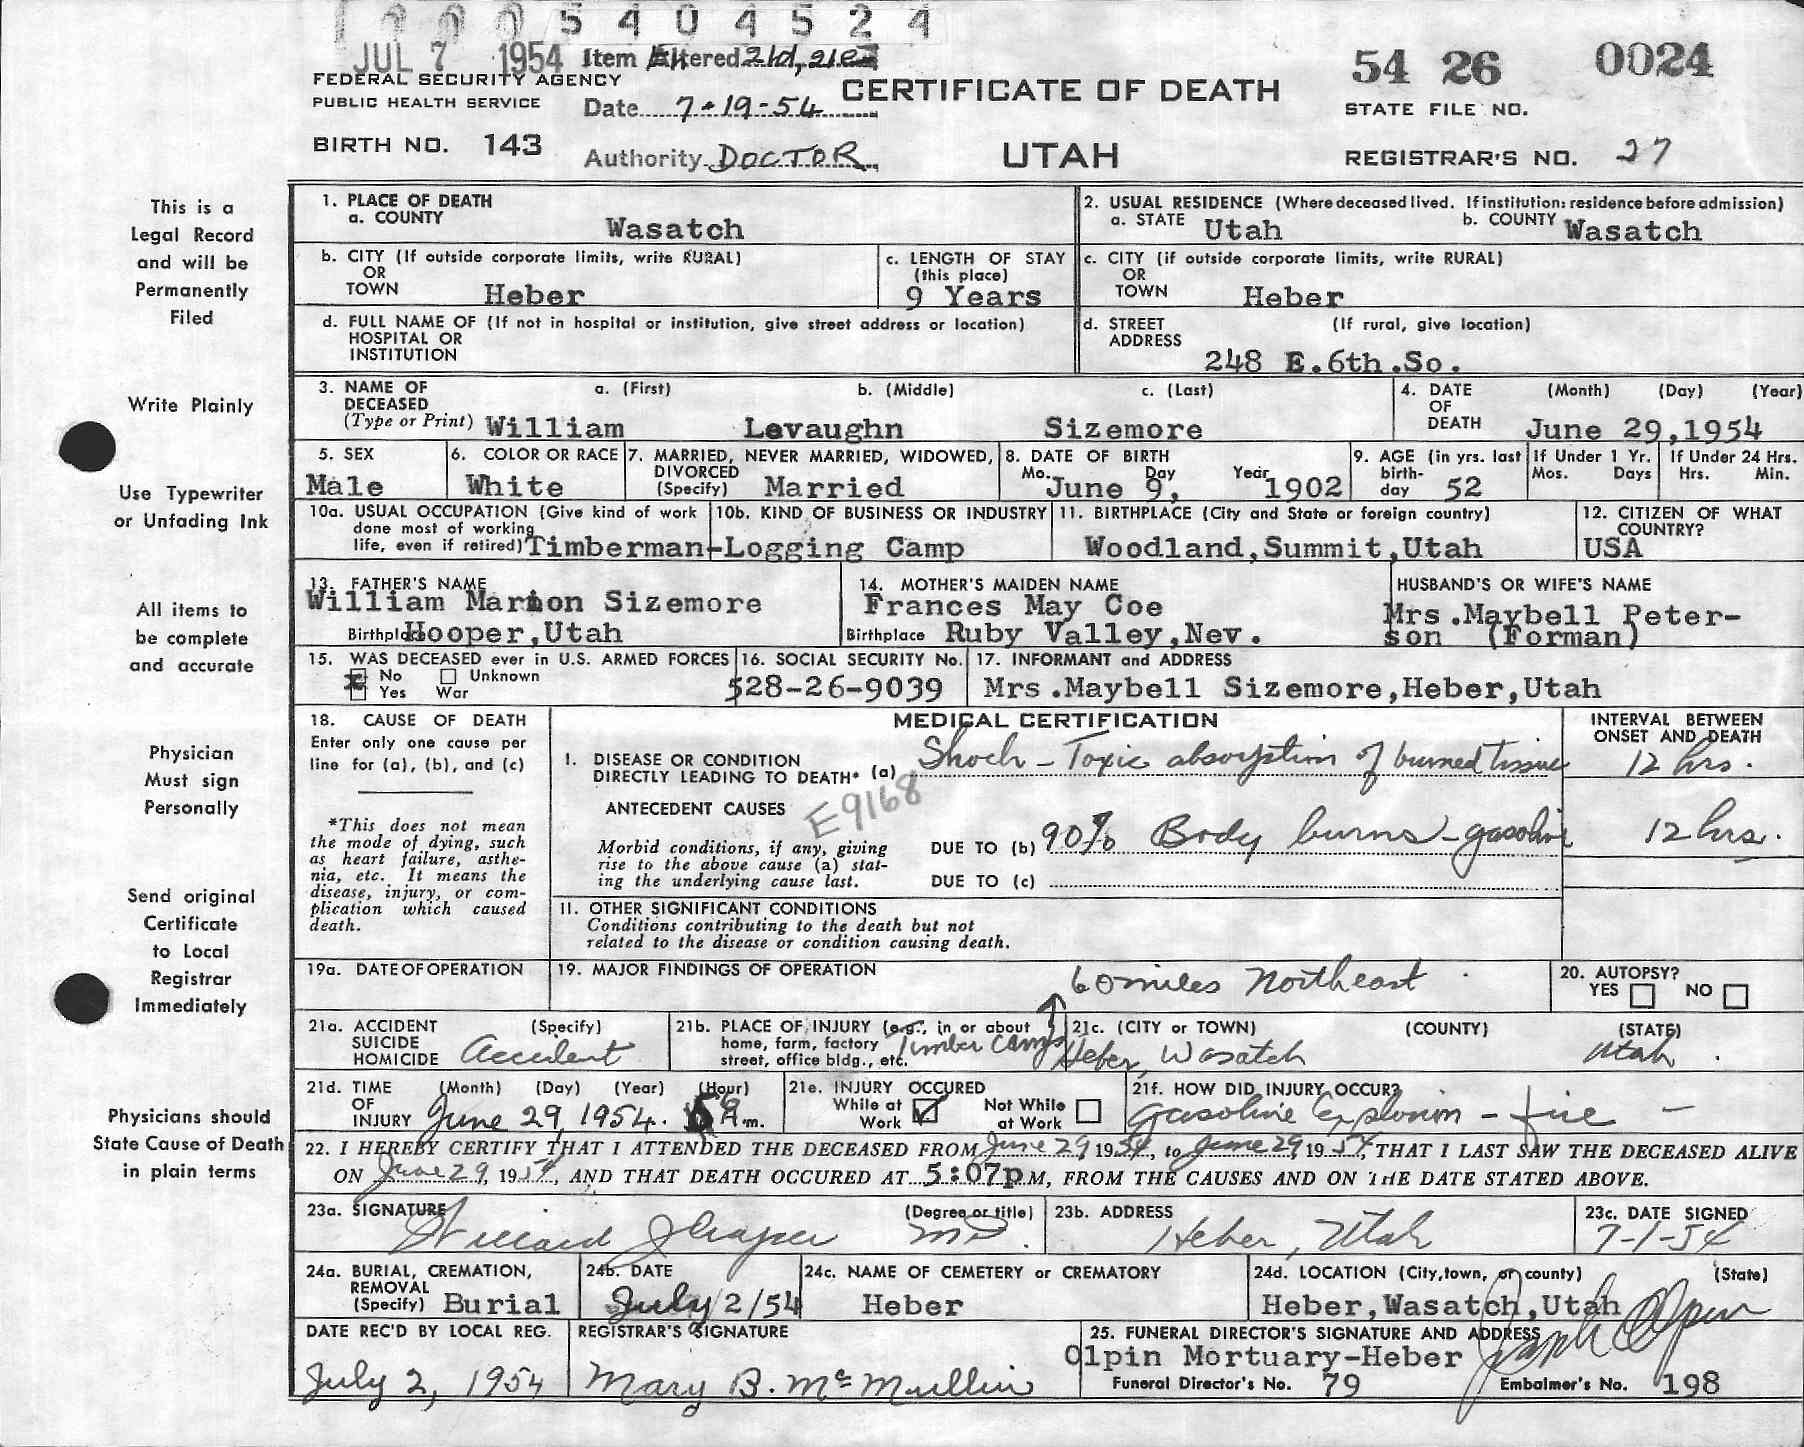 1 0 0 5 4 0 4 5 2 4
JUL 7 1954 Item Altered 21d, 21e
FEDERAL SECURITY AGENCY
PUBLIC HEALTH SERVICE
Date 7-19-54
CERTIFICATE OF DEATH
54 26 0024
STATE FILE NO.
BIRTH NO. 143
Authority DOCTOR
UTAH
REGISTRAR'S NO. 27
This is a
Legal Record
and will be
Permanently
Filed
Write Plainly
Use Typewriter
or Unfading Ink
All items to
be complete
and accurate
Physician
Must sign
Personally
Send original
Certificate
to Local
Registrar
Immediately
Physicians should
State Cause of Death
in plain terms
1. PLACE OF DEATH
a. COUNTY Wasatch
2. USUAL RESIDENCE (Where deceased lived. If institution: residence before admission)
a. STATE Utah b. COUNTY Wasatch
b. CITY (If outside corporate limits, write RURAL)
OR
TOWN Heber
c. LENGTH OF STAY
(this place)
9 Years
c. CITY (if outside corporate limits, write RURAL)
OR
TOWN Heber
d. FULL NAME OF (If not in hospital or institution, give street address or location)
HOSPITAL OR
INSTITUTION
d. STREET (If rural, give location)
ADDRESS
248 E.6th.So.
3. NAME OF DECEASED
(Type or Print)
a. (First) b. (Middle) c. (Last)
William Levaughn Sizemore
4. DATE OF DEATH (Month) (Day) (Year)
June 29,1954
5. SEX
Male
6. COLOR OR RACE
White
7. MARRIED, NEVER MARRIED, WIDOWED,
DIVORCED
(Specify) Married
8. DATE OF BIRTH
Mo. Day Year
June 9, 1902
9. AGE (in yrs. last
birth-
day 52
If Under 1 Yr.
Mos. Days
If Under 24 Hrs.
Hrs. Min.
10a. USUAL OCCUPATION (Give kind of work
done most of working
life, even if retired) Timberman-
10b. KIND OF BUSINESS OR INDUSTRY
Logging Camp
11. BIRTHPLACE (City and State or foreign country)
Woodland,Summit,Utah
12. CITIZEN OF WHAT
COUNTRY?
USA
13. FATHER'S NAME
William Marion Sizemore
Birthplace Hooper,Utah
14. MOTHER'S MAIDEN NAME
Frances May Coe
Birthplace Ruby Valley,Nev.
HUSBAND'S OR WIFE'S NAME
Mrs.Maybell Peter-
son (Forman)
15. WAS DECEASED ever in U.S. ARMED FORCES
No Unknown
Yes War
16. SOCIAL SECURITY No.
528-26-9039
17. INFORMANT and ADDRESS
Mrs.Maybell Sizemore,Heber,Utah
18. CAUSE OF DEATH
Enter only one cause per
line for (a), (b), and (c)
*This does not mean
the mode of dying, such
as heart failure, asthe-
nia, etc. It means the
disease, injury, or com-
plication which caused
death.
MEDICAL CERTIFICATION
INTERVAL BETWEEN
ONSET AND DEATH
I. DISEASE OR CONDITION
DIRECTLY LEADING TO DEATH* (a) Shock - Toxic absorption of burned tissue 12 hrs.
ANTECEDENT CAUSES
E9168
Morbid conditions, if any, giving
rise to the above cause (a) stat-
ing the underlying cause last.
DUE TO (b) 90% Body burns - gasoline 12 hrs.
DUE TO (c)
II. OTHER SIGNIFICANT CONDITIONS
Conditions contributing to the death but not
related to the disease or condition causing death.
19a. DATE OF OPERATION
19. MAJOR FINDINGS OF OPERATION
60 miles Northeast
20. AUTOPSY?
YES NO
21a. ACCIDENT (Specify)
SUICIDE
HOMICIDE Accident
21b. PLACE OF INJURY (e.g., in or about
home, farm, factory
street, office bldg., etc. Timber Camp
21c. (CITY or TOWN) (COUNTY) (STATE)
Heber, Wasatch Utah
21d. TIME (Month) (Day) (Year) (Hour)
OF
INJURY June 29, 1954. 5 A.m.
21e. INJURY OCCURED
While at Work Not While at Work
21f. HOW DID INJURY OCCUR?
Gasoline Explosion - fire -
22. I HEREBY CERTIFY THAT I ATTENDED THE DECEASED FROM June 29 1954, to June 29 1954, THAT I LAST SAW THE DECEASED ALIVE
ON June 29, 1954, AND THAT DEATH OCCURED AT 5:07p M, FROM THE CAUSES AND ON THE DATE STATED ABOVE.
23a. SIGNATURE (Degree or title)
MD.
23b. ADDRESS
Heber, Utah
23c. DATE SIGNED
7-1-54
24a. BURIAL, CREMATION,
REMOVAL
(Specify) Burial
24b. DATE
July 2/54
24c. NAME OF CEMETERY or CREMATORY
Heber
24d. LOCATION (City, town, or county) (State)
Heber,Wasatch,Utah
DATE REC'D BY LOCAL REG.
July 2, 1954
REGISTRAR'S SIGNATURE
Mary B. McMullin
25. FUNERAL DIRECTOR'S SIGNATURE AND ADDRESS
Olpin Mortuary-Heber
Funeral Director's No. 79 Embalmer's No. 198